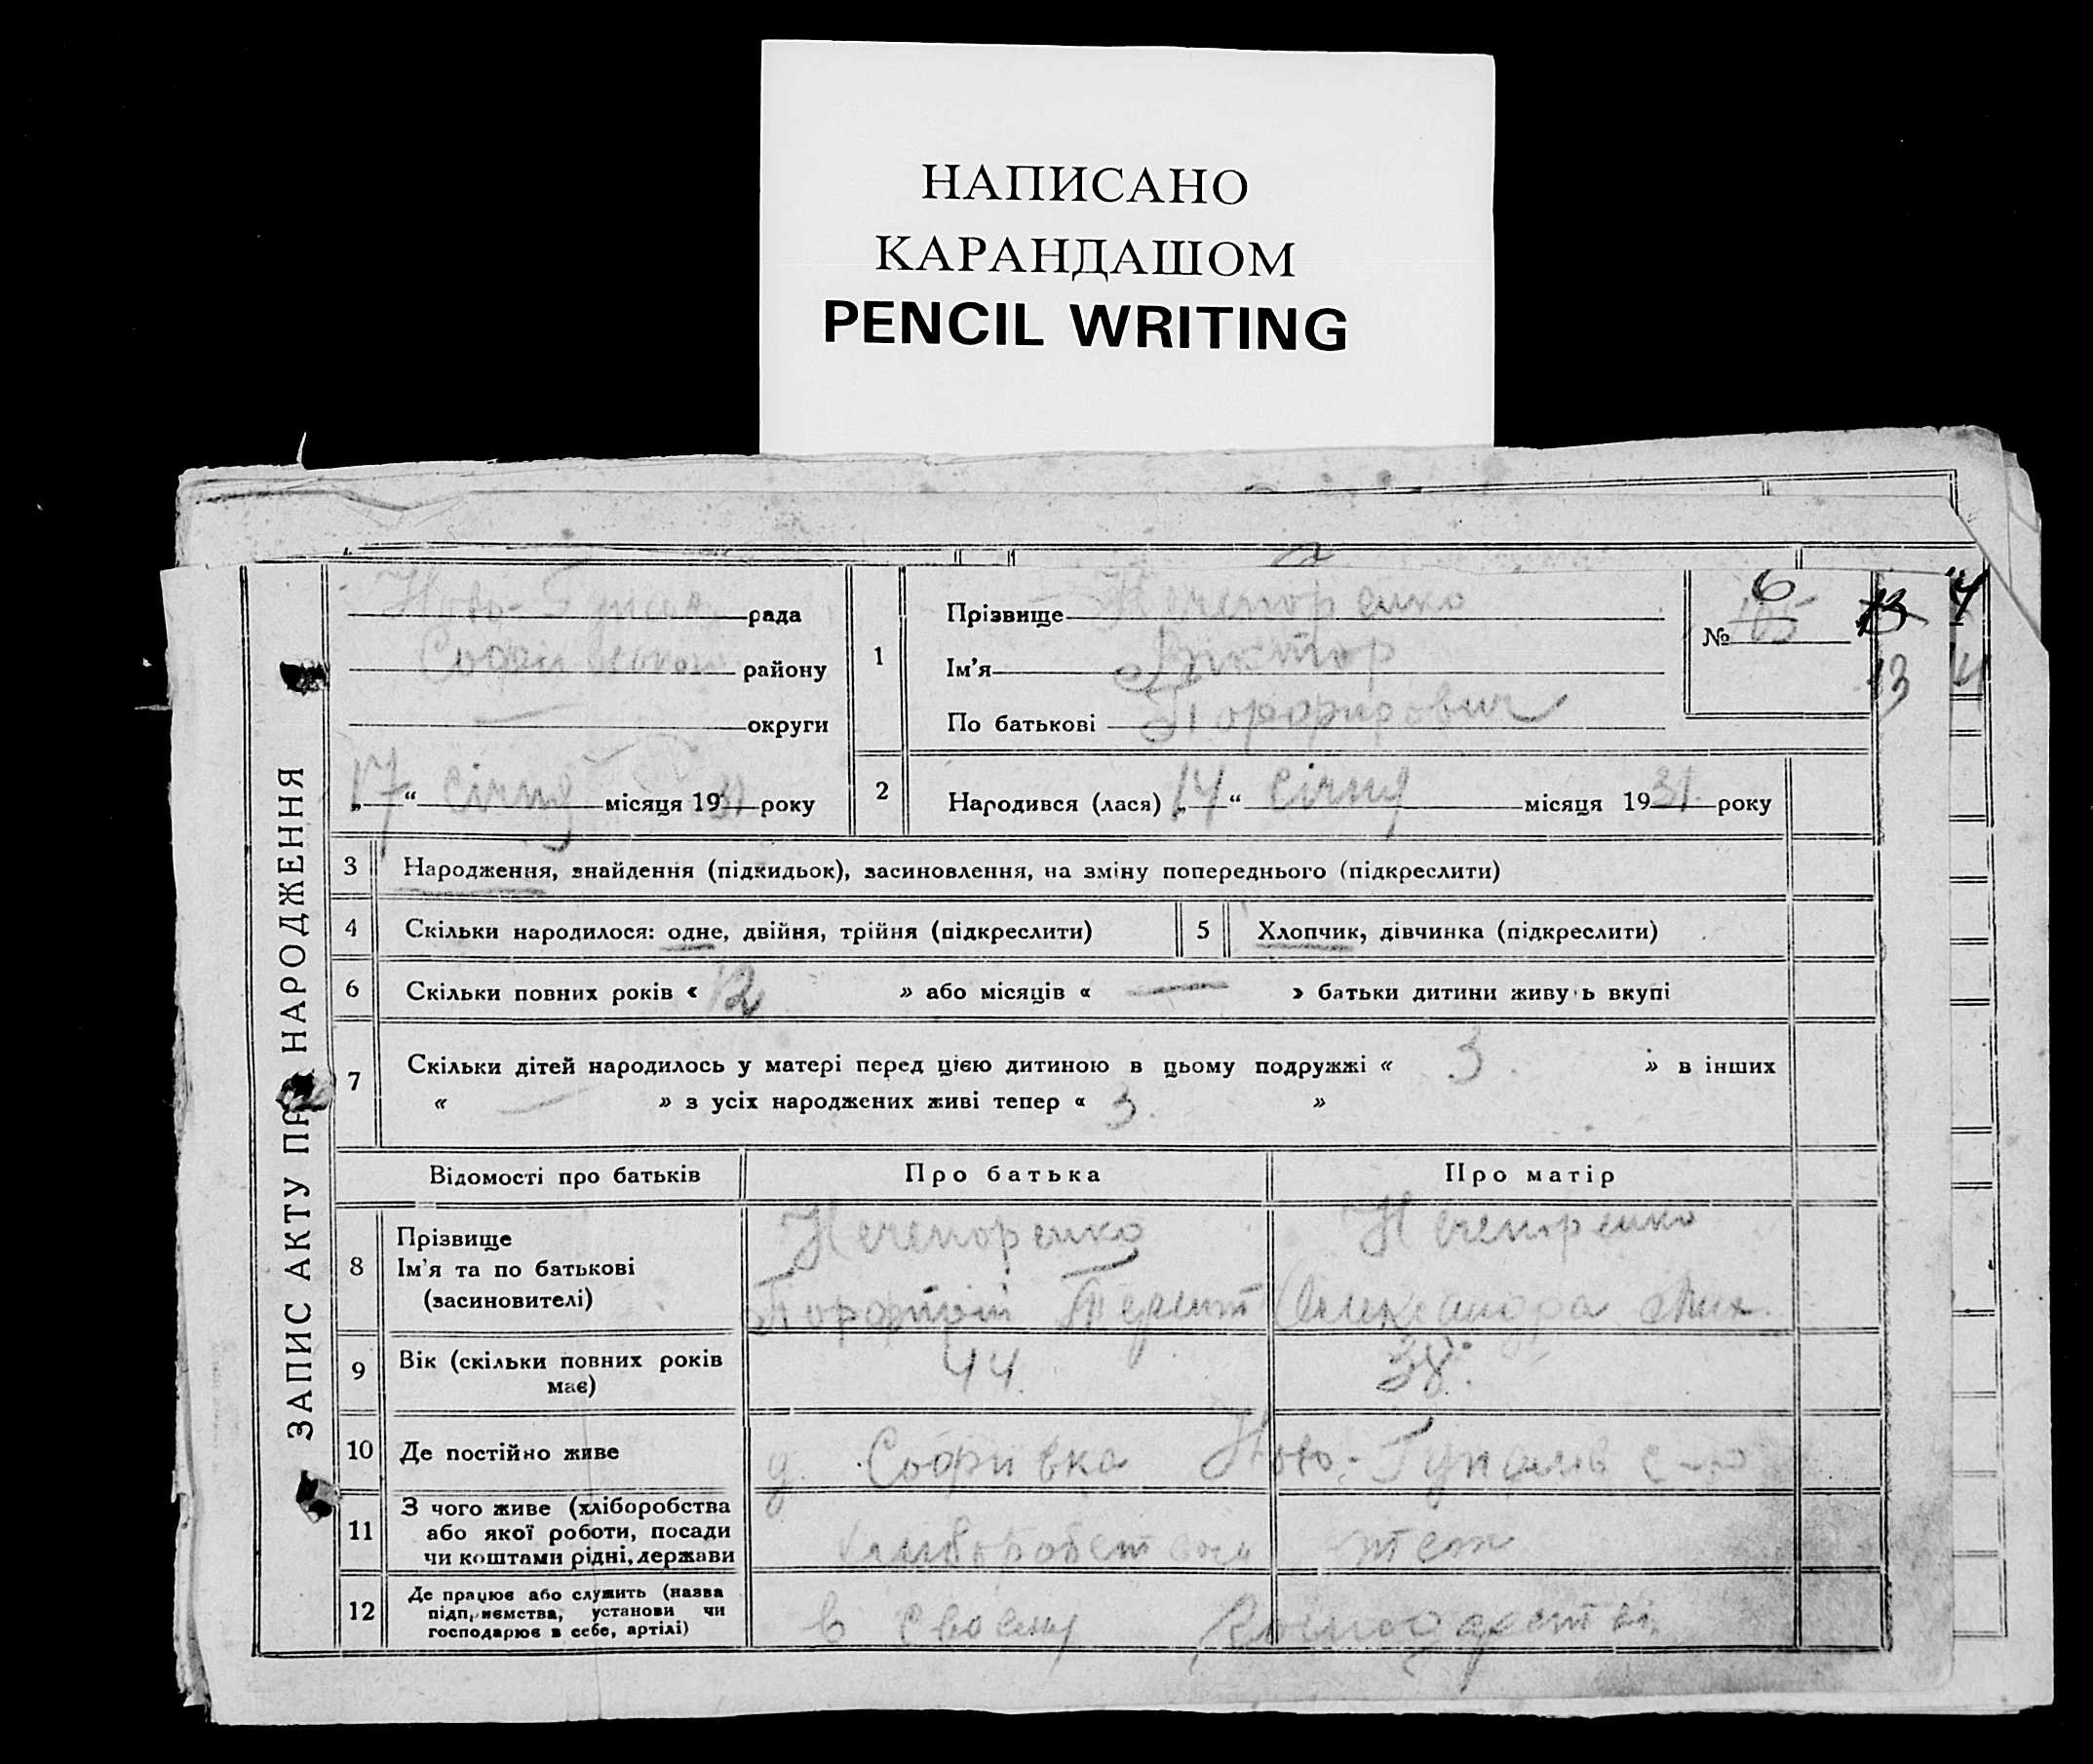 НАПИСАНО
КАРАНДАШОМ
PENCIL WRITING
ЗАПИС АКТУ ПРО НАРОДЖЕННЯ
Ново- рада
району
округи
„17“ січня місяця 1931 року
1
Прізвище Нечепоренко
Ім'я Віктор
По батькові Порфирович
6
№ 105
13 4
13 14
2 Народився (лася) „14“ січня місяця 1931 року
3 Народження, знайдення (підкидьок), засиновлення, на зміну попереднього (підкреслити)
4 Скільки народилося: одне, двійня, трійня (підкреслити) 5 Хлопчик, дівчинка (підкреслити)
6 Скільки повних років « 12 » або місяців « — » батьки дитини живу ь вкупі
7 Скільки дітей народилось у матері перед цією дитиною в цьому подружжі « 3. » в інших
« — » з усіх народжених живі тепер « 3. »
Відомості про батьків Про батька Про матір
8 Прізвище Нечепоренко Нечепоренко
Ім'я та по батькові
(засиновителі) Порфирій Терент Олександра Мих.
9 Вік (скільки повних років 44. 38.
має)
10 Де постійно живе д. Софиївка Ново-
11 З чого живе (хліборобства
або якої роботи, посади хліборобством теж
чи коштами рідні, держави
12 Де працює або служить (назва
підприємства, установи чи в своєму господарстві.
господарює в себе, артілі)